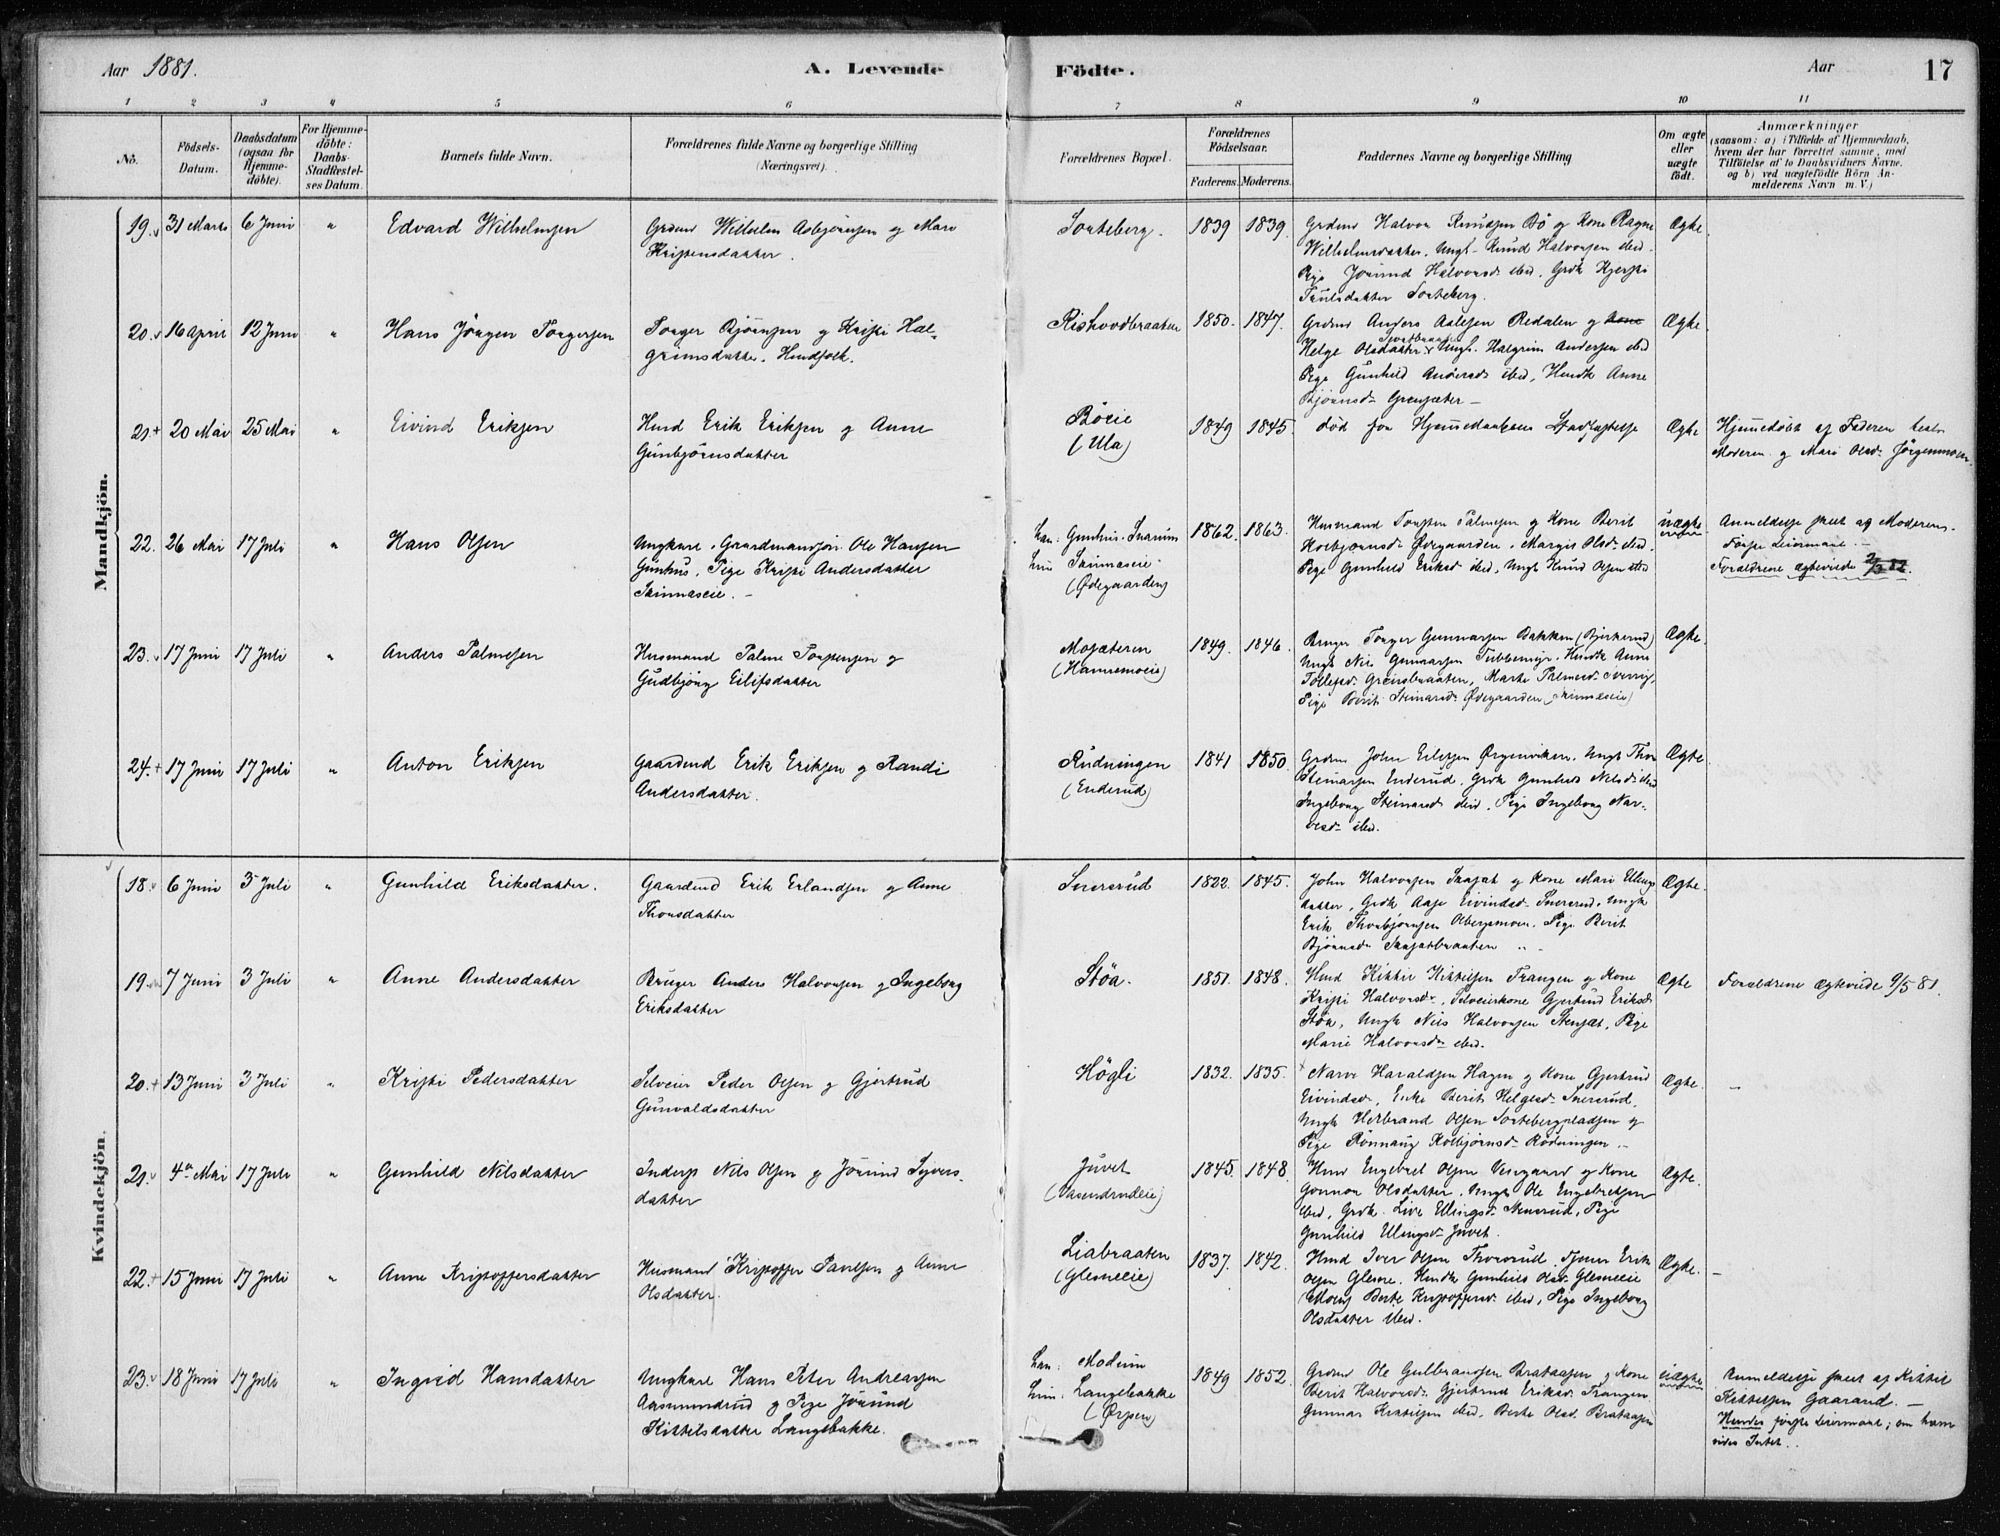 Aar 1881.
A. Levende Födte.
Aar
17
1 2 3 4 5 6 7 8 9 10 11
No.
Födsels-
Datum.
Daabsdatum
(ogsaa for
Hjemme-
döbte).
For Hjemme-
döbte:
Daabs-
Stadfæstel-
ses Datum.
Barnets fulde Navn.
Forældrenes fulde Navne og borgerlige Stilling
(Næringsvei).
Forældrenes Bopæl.
Forældrenes
Födselsaar.
Faderens. Moderens.
Faddernes Navne og borgerlige Stilling
Om ægte
eller
uægte
födt.
Anmærkninger
(saasom: a) i Tilfælde af Hjemmedaab,
hvem der har forrettet samme, med
Tilföielse af to Daabsvidners Navne,
og b) ved uægtefödte Börn An-
melderens Navn m. V.)
Mandkjön.
19. 31 Marts 6 Juni " Edvard Wilhelmsen
Grdmd Wilhelm Asbjörnsen og Mari
Kristensdatter.
Sorteberg. 1839 1839.
Grdmd Halvor Knudsen Bö og Kone Ragne
Wilhelmsdatter, Ungk. Knud Halvorsen ibid.
Pige Jörand Halvorsd. ibid. Grdk Kjersti
Paulsdatter Sorteberg.
Ægte
20. 16 April 12 Juni " Hans Jörgen Torgersen
Torger Björnsen og Kristi Hal-
grimsdatter. Husfolk.
Rishovdbraaten 1850. 1847.
Grdmd Anders Aslesen Redalen og Kone
Helge Olsdatter, Ungk. Halgrim Andersen ibid
Pige Gunhild Andersd. ibid, Husdk Anne
Björnsd.
Ægte
21. 20 Mai 25 Mai " Eivind Eriksen
Husmd Erik Eriksen og Anne
Gunbjörnsdatter
Börtie
(Ula)
1849 1845.
död før Hjemmedaabens Stadfæstelse
Ægte
Hjemmedöbt af Faderen
Moderen og Mari Olsd. Jørgenmoen.
22. 26 Mai 17 Juli " Hans Olsen
Ungkarl, Gaardmandssön Ole Hansen
Gunhus, Pige Kristi Andersdatter
Skinnæseie. -
han: Gunhus. Snarum
hun Skinnæseie.
(Ødegaarden)
1862. 1863.
Husmand Torsten Palmesen og Kone Berit
Kolbjørnsd. Ødegaarden, Margit Olsd. ibid.
Pige Gunhild Eriksd ibid, Ungk Knud Olsen ibid
uægte
Anmeldelse skeet af Moderen.
Første Leiermaal. -
Forældrene ægteviede 2/3 82.
23. 17 Juni 17 Juli " Anders Palmesen
Husmand Palme Torstensen og
Gudbjörg Eilifsdatter
Mosæteren
(Hamremoeie)
1849. 1846.
Bruger Torger Gunnarsen Bakken (Bjerkerud)
Ungk Nils Gunnarsen Husdk Anne
Tollefsd. Marte Palmesd.
Pige Berit Steinarsd. Ødegaarden (Skinnæseie)
Ægte.
24. 17 Juni 17 Juli " Anton Eriksen
Gaardmd Erik Eriksen og Randi
Andersdatter.
Rudningen
(Enderud)
1841 1850.
Grdmd John Eilefsen Ørgenviken. Ungk Thor
Steinarsen Enderud, Grdk Gunhild Nilsd. ibid
Ingeborg Steinarsd ibid, Pige Ingeborg Nar-
vesd. ibid.
Ægte
Kvindekjön.
18. 6 Juni 3 Juli " Gunhild Eriksdatter.
Gaardmd Erik Erlandsen og Anne
Thorsdatter
Snersrud 1822. 1845.
John Halvorsen Skajat og Kone Mari Ellings
datter, Grdk Aase Eivindsd. Snersrud. Ungk
Erik Thorbjørnsen Olbergmoen. Pige Berit
Bjørnsd. Skajatbraaten
Ægte.
19. 7 Juni 3 Juli " Anne Andersdatter
Bruger Anders Halvorsen og Ingeborg
Eriksdatter
Stöa. 1851. 1848.
Husmd Kittil Kittilsen Trangen og Kone
Kristi Halvorsd., Selveierkone Gjertrud Eriksd.
Stöa, Ungk Nils Halvorsen Stensæt, Pige
Marie Halvorsd. ibid.
Ægte
Forældrene ægteviede 9/5 81.
20. 13 Juni 3 Juli " Kristi Pedersdatter
Selveier Peder Olsen og Gjertrud
Gunvaldsdatter
Högli 1832. 1835.
Narve Haraldsen Hagen og Kone Gjertrud
Eivindsd., Enke Berit Helgesd. Snersrud,
Ungk Herbrand Olsen Sortebergpladsen og
Pige Rönnaug Kolbjørnsd. Rödningen. -
Ægte. -
21. 4de Mai 17 Juli " Gunhild Nilsdatter
Inderst Nils Olsen og Jörand Syvers-
datter
Juvet
(Vasendrudeie)
1845. 1848.
Husmd Engebret Olsen og Kone
Gonnor Olsdatter, Ungk Ole Engebretsen
ibid, Grdk. Live Ellingsd. Pige
Gunhild Ellingsd. Juvet.
Ægte.
22. 15 Juni 17 Juli " Anne Kristoffersdatter
Husmand Kristoffer Paulsen og Anne
Olsdatter.
Liabraaten
(Glesneeie)
1837. 1842.
Husmd Iver Olsen Thorsrud. Erik
Olsen Glesne. Husdk Gunhild Olsd. Glesneeie
(Moen) Berte Kristoffersd. ibid, Pige Ingeborg
Olsdatter ibid.
Ægte. -
23. 18 Juni 17 Juli " Ingrid Hansdatter
Ungkarl Hans Peter Andreassen
Aasmundrud og Pige Jörand
Kittelsdatter Langebakke.
han: Modum
hun: Langebakke
(Ørpen)
1849 1852.
Grdmd Ole Gulbrandsen Brataasen og Kone
Berit Halvorsd. Gjertrud Eriksd. Trangen
Gunnar Kittilsen ibid. Berte Olsd. Brataasen
uægte
Anmeldelse skeet af Kittil
Kittilsen Gaarand. -
Hendes første Leiermaal; om ham
vides Intet.